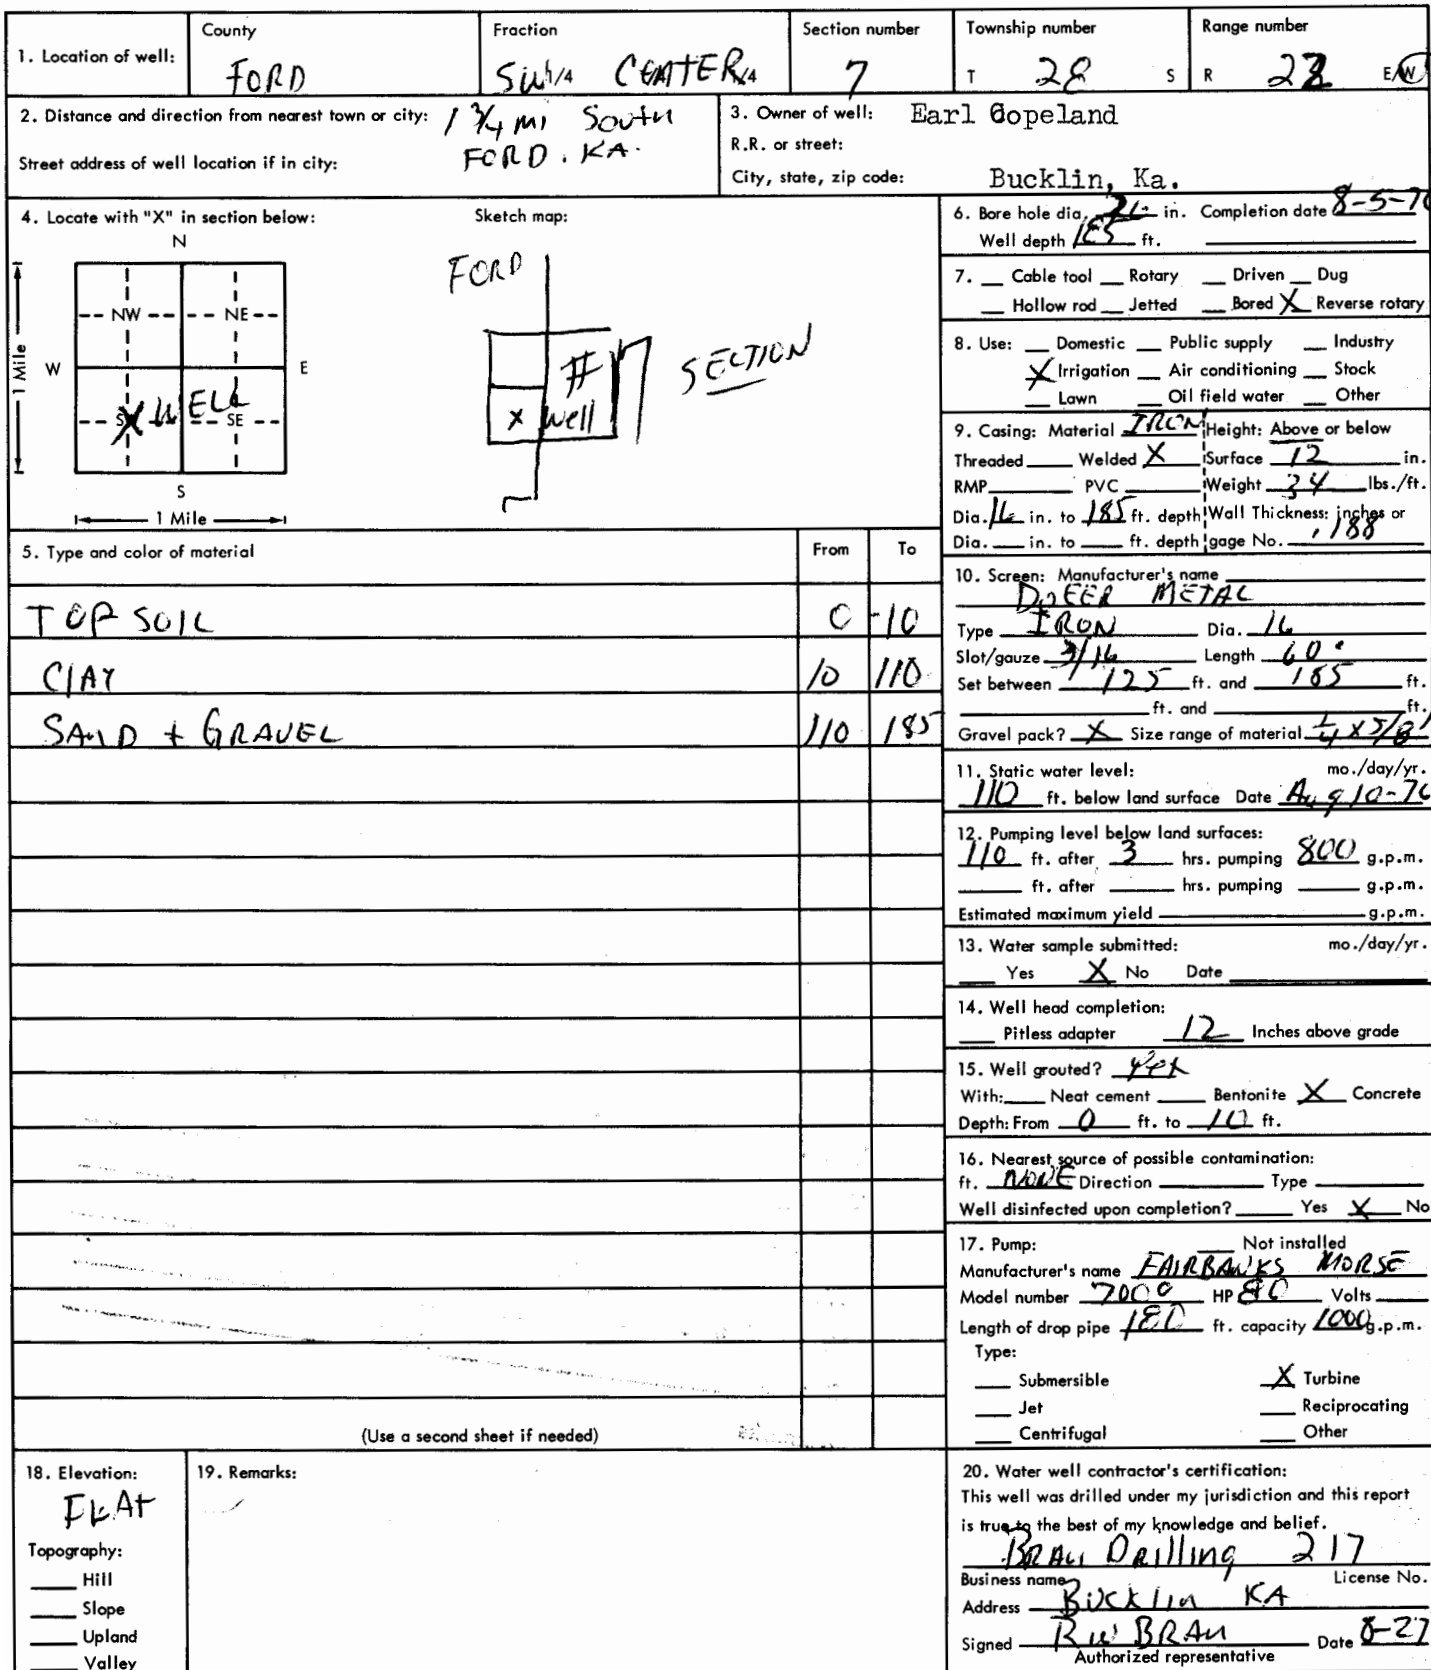 1. Location of well:
County
FORD
Fraction
SW 1/4 CENTER 1/4
Section number
7
Township number
T 28 S
Range number
R 22 E/W
2. Distance and direction from nearest town or city: 1 3/4 mi South
FORD. KA.
Street address of well location if in city:
3. Owner of well: Earl Copeland
R.R. or street:
City, state, zip code: Bucklin, Ka.
4. Locate with "X" in section below:
N
NW NE
W E
1 Mile
X WELL SE
S
1 Mile
Sketch map:
FORD
# 7 SECTION
X well
5. Type and color of material From To
TOP SOIL 0 -10
CLAY 10 110
SAND + GRAVEL 110 185
(Use a second sheet if needed)
6. Bore hole dia. in. Completion date 8-5-76
Well depth 185 ft.
7. Cable tool Rotary Driven Dug
Hollow rod Jetted Bored X Reverse rotary
8. Use: Domestic Public supply Industry
X Irrigation Air conditioning Stock
Lawn Oil field water Other
9. Casing: Material IRON Height: Above or below
Threaded Welded X Surface 12 in.
RMP PVC Weight 34 lbs./ft.
Dia. 16 in. to 185 ft. depth Wall Thickness: inches or
Dia. in. to ft. depth gage No. .188
10. Screen: Manufacturer's name
DOEER METAL
Type IRON Dia. 16
Slot/gauze 3/16 Length 60'
Set between 125 ft. and 185 ft.
ft. and ft.
Gravel pack? X Size range of material 1/4 x 5/8
11. Static water level: mo./day/yr.
110 ft. below land surface Date Aug 10-76
12. Pumping level below land surfaces:
110 ft. after 3 hrs. pumping 800 g.p.m.
ft. after hrs. pumping g.p.m.
Estimated maximum yield g.p.m.
13. Water sample submitted: mo./day/yr.
Yes X No Date
14. Well head completion:
Pitless adapter 12 Inches above grade
15. Well grouted? yes
With: Neat cement Bentonite X Concrete
Depth: From 0 ft. to 10 ft.
16. Nearest source of possible contamination:
ft. NONE Direction Type
Well disinfected upon completion? Yes X No
17. Pump: Not installed
Manufacturer's name FAIRBANKS MORSE
Model number 7000 HP 80 Volts
Length of drop pipe 180 ft. capacity 1000 g.p.m.
Type:
Submersible X Turbine
Jet Reciprocating
Centrifugal Other
18. Elevation:
FLAT
Topography:
Hill
Slope
Upland
Valley
19. Remarks:
20. Water well contractor's certification:
This well was drilled under my jurisdiction and this report
is true to the best of my knowledge and belief.
BRAU Drilling 217
Business name License No.
Address Bucklin KA
Signed R W BRAU Date 8-27
Authorized representative